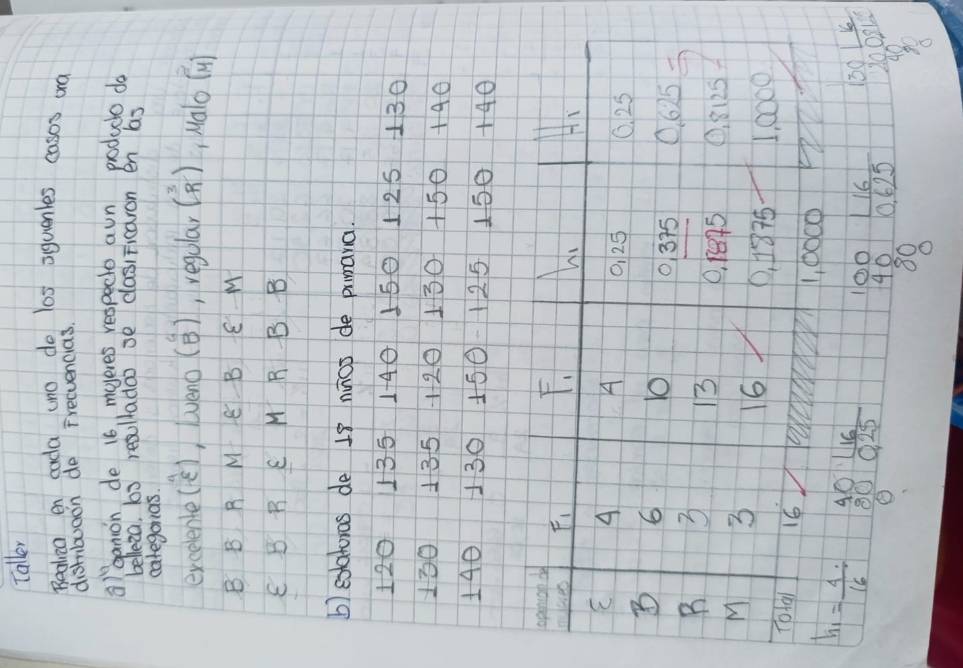 Taller
Realiza en cada uno de los siguientes casos una
distribución de Frecuencias.
a) opinión de 16 mujeres respecto a un producto de
belleza, los resultados se clasificaron en las
categorias.
excelente (E), bueno (B), regular (R), Malo (M)
B B R M E B E M
E B R E M R B B
b) estaturas de 18 niños de primaria.
120 135 140 150 125 130
130 135 120 130 150 140
140 130 150 125 150 140
Fi Fi hi Hi
E 4 4 0,25 0,25
B 6 10 0,375 0,625
R 3 13 0,1875 0,8125
M 3 16 0,1875 1,0000
Total 16 1,0000
hi = 4/16 40 16 100 16 130 16
80 0,25 40 0,625 20 0,8125
0 80 40
0 80
0